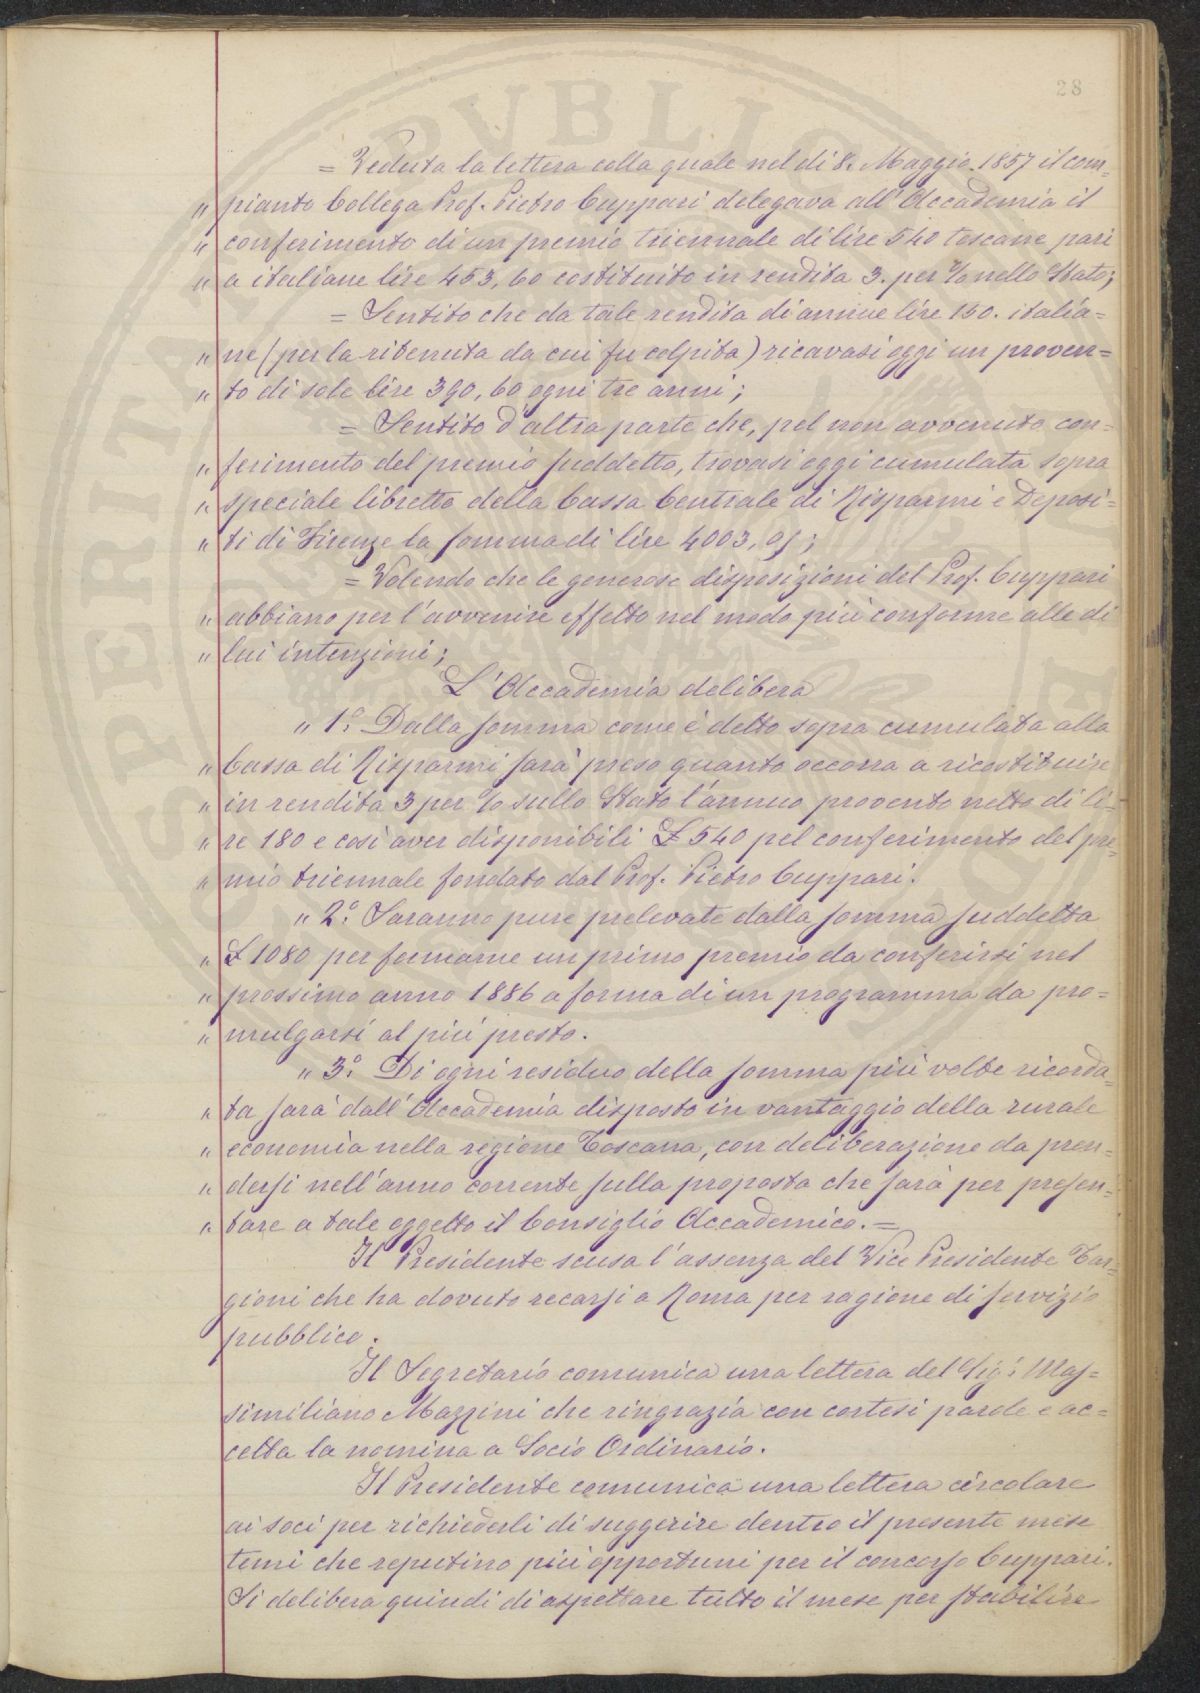 28
= Veduta la lettera colla quale nel dì 8. Maggio 1857 il com=
" pianto Collega Prof. Pietro Cuppari delegava all'Accademia il
" conferimento di un premio triennale di lire 540 toscane, pari
" a italiane lire 453,60 costituito in rendita 3. per % nello Stato;
= Sentito che da tale rendita di annue lire 150. italia=
" ne (per la ritenuta da cui fu colpita) ricavasi oggi un proven=
" to di sole lire 390,60 ogni tre anni;
= Sentito d'altra parte che, pel non avvenuto con=
" ferimento del premio suddetto, trovasi oggi cumulata sopra
" speciale libretto della Cassa Centrale di Risparmi e Deposi=
" ti di Firenze la somma di lire 4003,
= Volendo che le generose disposizioni del Prof. Cuppari
" abbiano per l'avvenire effetto nel modo più conforme alle di
" lui intenzioni;
L'Accademia delibera
" 1.° Dalla somma come è detto sopra cumulata alla
" Cassa di Risparmi sarà preso quanto occorra a ricostituire
" in rendita 3 per % sullo Stato l'annuo provento netto di li=
" re 180 e così aver disponibili £ 540 pel conferimento del pre=
" mio triennale fondato dal Prof. Pietro Cuppari.
" 2.° Saranno pure prelevate dalla somma suddetta
" £ 1080 per formarne un primo premio da conferirsi nel
" prossimo anno 1886 a forma di un programma da pro=
" mulgarsi al più presto.
" 3.° Di ogni residuo della somma più volte ricorda=
" ta sarà dall'Accademia disposto in vantaggio della rurale
" economia nella regione Toscana, con deliberazione da pren=
" dersi nell'anno corrente sulla proposta che sarà per presen=
" tare a tale oggetto il Consiglio Accademico. =
Il Presidente scusa l'assenza del Vice Presidente Tar=
gioni che ha dovuto recarsi a Roma per ragione di servizio
pubblico.
Il Segretario comunica una lettera del Sig.r Mas=
similiano Mazzini che ringrazia con cortesi parole e ac=
cetta la nomina a Socio Ordinario.
Il Presidente comunica una lettera circolare
ai soci per richiederli di suggerire dentro il presente mese
temi che reputino più opportuni per il concorso Cuppari.
Si delibera quindi di aspettare tutto il mese per stabilire